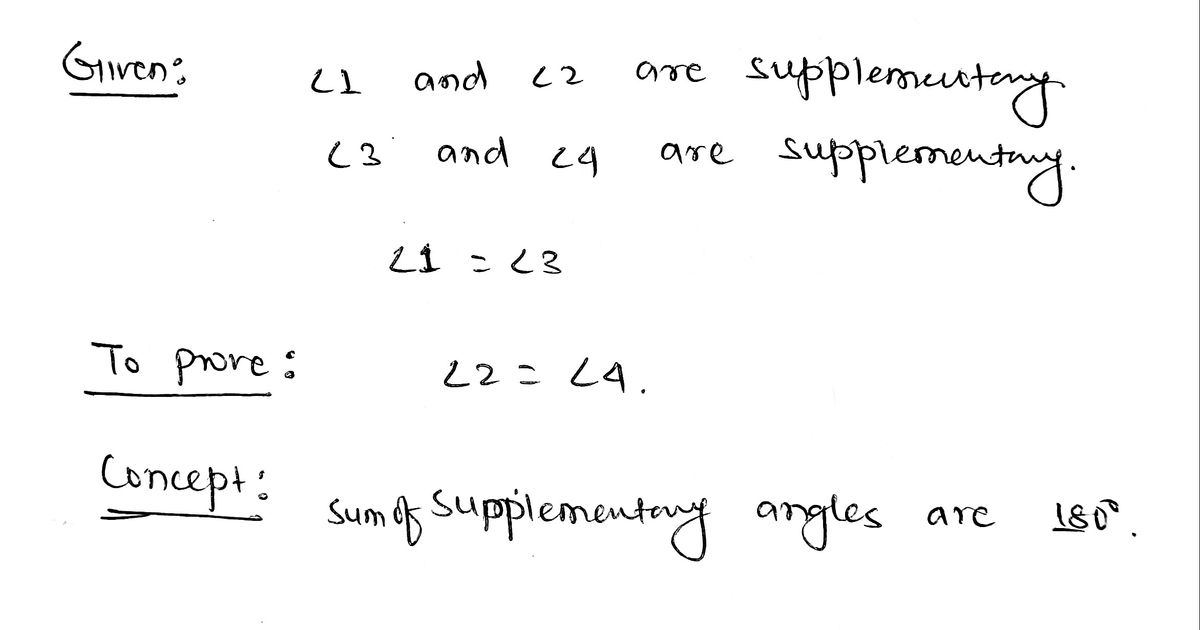 Given: ∠1 and ∠2 are supplementary
∠3 and ∠4 are supplementary.
∠1 = ∠3
To prove: ∠2 = ∠4.
Concept: sum of supplementary angles are 180°.